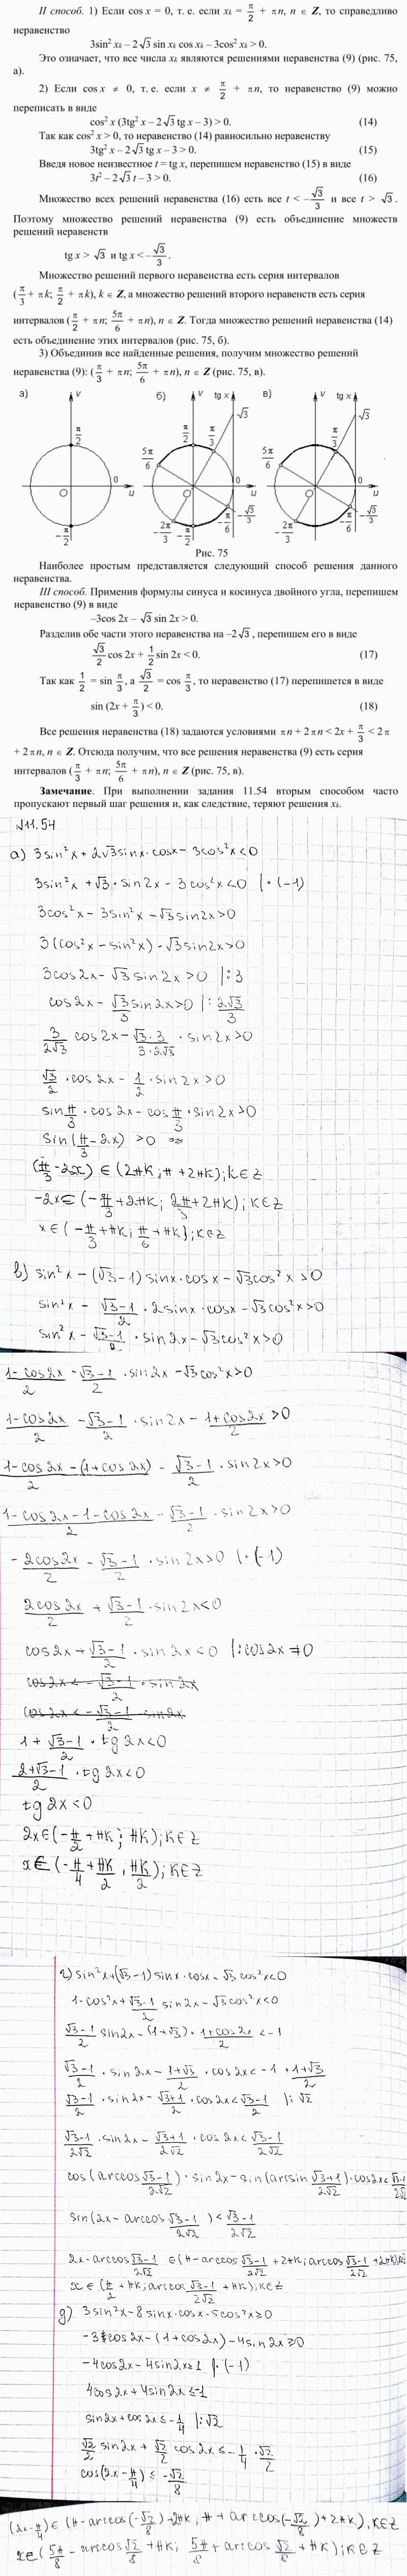 II способ. 1) Если cos x = 0, т. е. если xₖ = π/2 + πn, n ∈ Z, то справедливо
неравенство
3sin² xₖ – 2√3 sin xₖ cos xₖ – 3cos² xₖ > 0.
Это означает, что все числа xₖ являются решениями неравенства (9) (рис. 75,
а).
2) Если cos x ≠ 0, т. е. если x ≠ π/2 + πn, то неравенство (9) можно
переписать в виде
cos² x (3tg² x – 2√3 tg x – 3) > 0. (14)
Так как cos² x > 0, то неравенство (14) равносильно неравенству
3tg² x – 2√3 tg x – 3 > 0. (15)
Введя новое неизвестное t = tg x, перепишем неравенство (15) в виде
3t² – 2√3 t – 3 > 0. (16)
Множество всех решений неравенства (16) есть все t < –√3/3 и все t > √3.
Поэтому множество решений неравенства (9) есть объединение множеств
решений неравенств
tg x > √3 и tg x < –√3/3.
Множество решений первого неравенства есть серия интервалов
(π/3 + πk; π/2 + πk), k ∈ Z, а множество решений второго неравенств есть серия
интервалов (π/2 + πn; 5π/6 + πn), n ∈ Z. Тогда множество решений неравенства (14)
есть объединение этих интервалов (рис. 75, б).
3) Объединив все найденные решения, получим множество решений
неравенства (9): (π/3 + πn; 5π/6 + πn), n ∈ Z (рис. 75, в).
а) v π/2 0 O u –π/2
б) v tg x √3 π/2 π/3 5π/6 0 O u –π/6 –√3/3 –2π/3 –π/2
в) v tg x √3 π/3 5π/6 0 O u –π/6 –√3/3 –2π/3
Рис. 75
Наиболее простым представляется следующий способ решения данного
неравенства.
III способ. Применив формулы синуса и косинуса двойного угла, перепишем
неравенство (9) в виде
–3cos 2x – √3 sin 2x > 0.
Разделив обе части этого неравенства на –2√3, перепишем его в виде
√3/2 cos 2x + 1/2 sin 2x < 0. (17)
Так как 1/2 = sin π/3, а √3/2 = cos π/3, то неравенство (17) перепишется в виде
sin (2x + π/3) < 0. (18)
Все решения неравенства (18) задаются условиями πn + 2πn < 2x + π/3 < 2π
+ 2πn, n ∈ Z. Отсюда получим, что все решения неравенства (9) есть серия
интервалов (π/3 + πn; 5π/6 + πn), n ∈ Z (рис. 75, в).
Замечание. При выполнении задания 11.54 вторым способом часто
пропускают первый шаг решения и, как следствие, теряют решения xₖ.
№11.54
а) 3sin²x + 2√3sinx·cosx – 3cos²x<0
3sin²x + √3·sin2x – 3cos²x<0 |·(-1)
3cos²x – 3sin²x – √3sin2x>0
3(cos²x – sin²x) – √3sin2x>0
3cos2x – √3sin2x>0 |:3
cos2x – √3/3 sin2x>0 |: 2√3/3
3/2√3 cos2x – √3·3/3·2√3 · sin2x>0
√3/2 · cos2x – 1/2 · sin2x>0
sin π/3 · cos2x – cos π/3 · sin2x>0
sin(π/3 – 2x) >0
(π/3 – 2x) ∈ (2πk; π + 2πk); k∈Z
-2x∈(-π/3 + 2πk; 2π/3 + 2πk); k∈Z
x∈(-π/3 + πk; π/6 + πk); k∈Z
в) sin²x – (√3–1)sinx·cosx – √3cos²x>0
sin²x – √3–1/2 · 2sinx·cosx – √3cos²x>0
sin²x – √3–1/2 · sin2x – √3cos²x>0
1–cos2x/2 – √3–1/2 · sin2x – √3cos²x>0
1–cos2x/2 – √3–1/2 · sin2x – 1+cos2x/2 >0
1–cos2x–(1+cos2x)/2 – √3–1/2 · sin2x>0
1–cos2x–1–cos2x/2 – √3–1/2 · sin2x>0
– 2cos2x/2 – √3–1/2 · sin2x>0 |·(-1)
2cos2x/2 + √3–1/2 · sin2x<0
cos2x + √3–1/2 · sin2x<0 |:cos2x≠0
cos2x < – √3–1/2 · sin2x
cos2x < – √3–1/2 · sin2x
1 + √3–1/2 · tg2x<0
2+√3–1/2 · tg2x<0
tg2x<0
2x∈(-π/2 + πk; πk); k∈Z
x∈(-π/4 + πk/2, πk/2); k∈Z
г) sin²x+(√3–1)sinx·cosx – √3cos²x<0
1–cos²x+ √3–1/2 sin2x – √3cos²x<0
√3–1/2 sin2x – (1+√3)· 1+cos2x/2 < –1
√3–1/2 · sin2x – 1+√3/2 · cos2x < –1 + 1+√3/2
√3–1/2 · sin2x – √3+1/2 · cos2x < √3–1/2 |:√2
√3–1/2√2 · sin2x – √3+1/2√2 · cos2x < √3–1/2√2
cos(arccos √3–1/2√2) · sin2x – sin(arcsin √3+1/2√2)·cos2x< √3–1/2√2
sin(2x – arccos √3–1/2√2) < √3–1/2√2
2x – arccos √3–1/2√2 ∈(π – arccos √3–1/2√2 + 2πk; arccos √3–1/2√2 + 2πk); k∈Z
x∈(π/2 + πk; arccos √3–1/2√2 + πk); k∈Z
д) 3sin²x – 8sinx·cosx – 5cos²x≥0
–3cos2x – (1+cos2x) – 4sin2x≥0
–4cos2x – 4sin2x≥1 |·(-1)
4cos2x + 4sin2x≤–1
sin2x + cos2x ≤ –1/4 |:√2
√2/2 sin2x + √2/2 cos2x ≤ –1/4 · √2/2
cos(2x – π/4) ≤ –√2/8
(2x – π/4) ∈ (π – arccos(–√2/8) + 2πk; π + arccos(–√2/8) + 2πk), k∈Z
x∈(5π/8 – arccos √2/8 + πk; 5π/8 + arccos √2/8 + πk); k∈Z